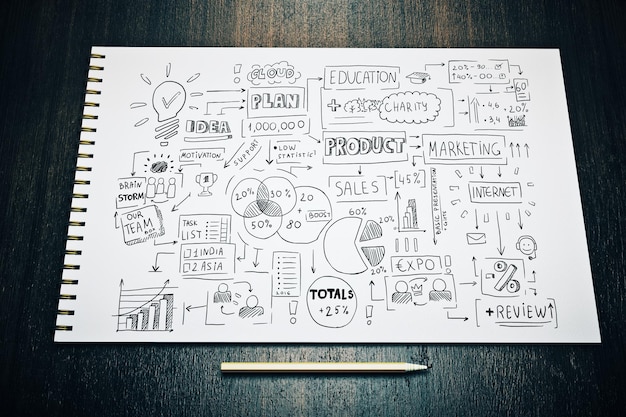 CLOUD
EDUCATION
PLAN
CHARITY
60
IDEA
1,000,000
20%
MOTIVATION
SUPPORT
LOW
STATISTIC!
PRODUCT
MARKETING
BRAIN
STORM
SALES
45%
INTERNET
BASIC PRESENTATION
20% 30% 20
+
50% 80
BOOST
60%
20%
20%
OUR
TEAM
TASK
LIST
1 INDIA
2 ASIA
EXPO!
%
TOTALS
+25%
+REVIEW